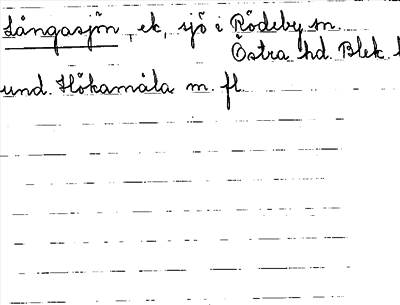 Långasjön, ek, sjö i Rödeby sn.
Östra hd. Blek. l
und. Hökamåla m. fl